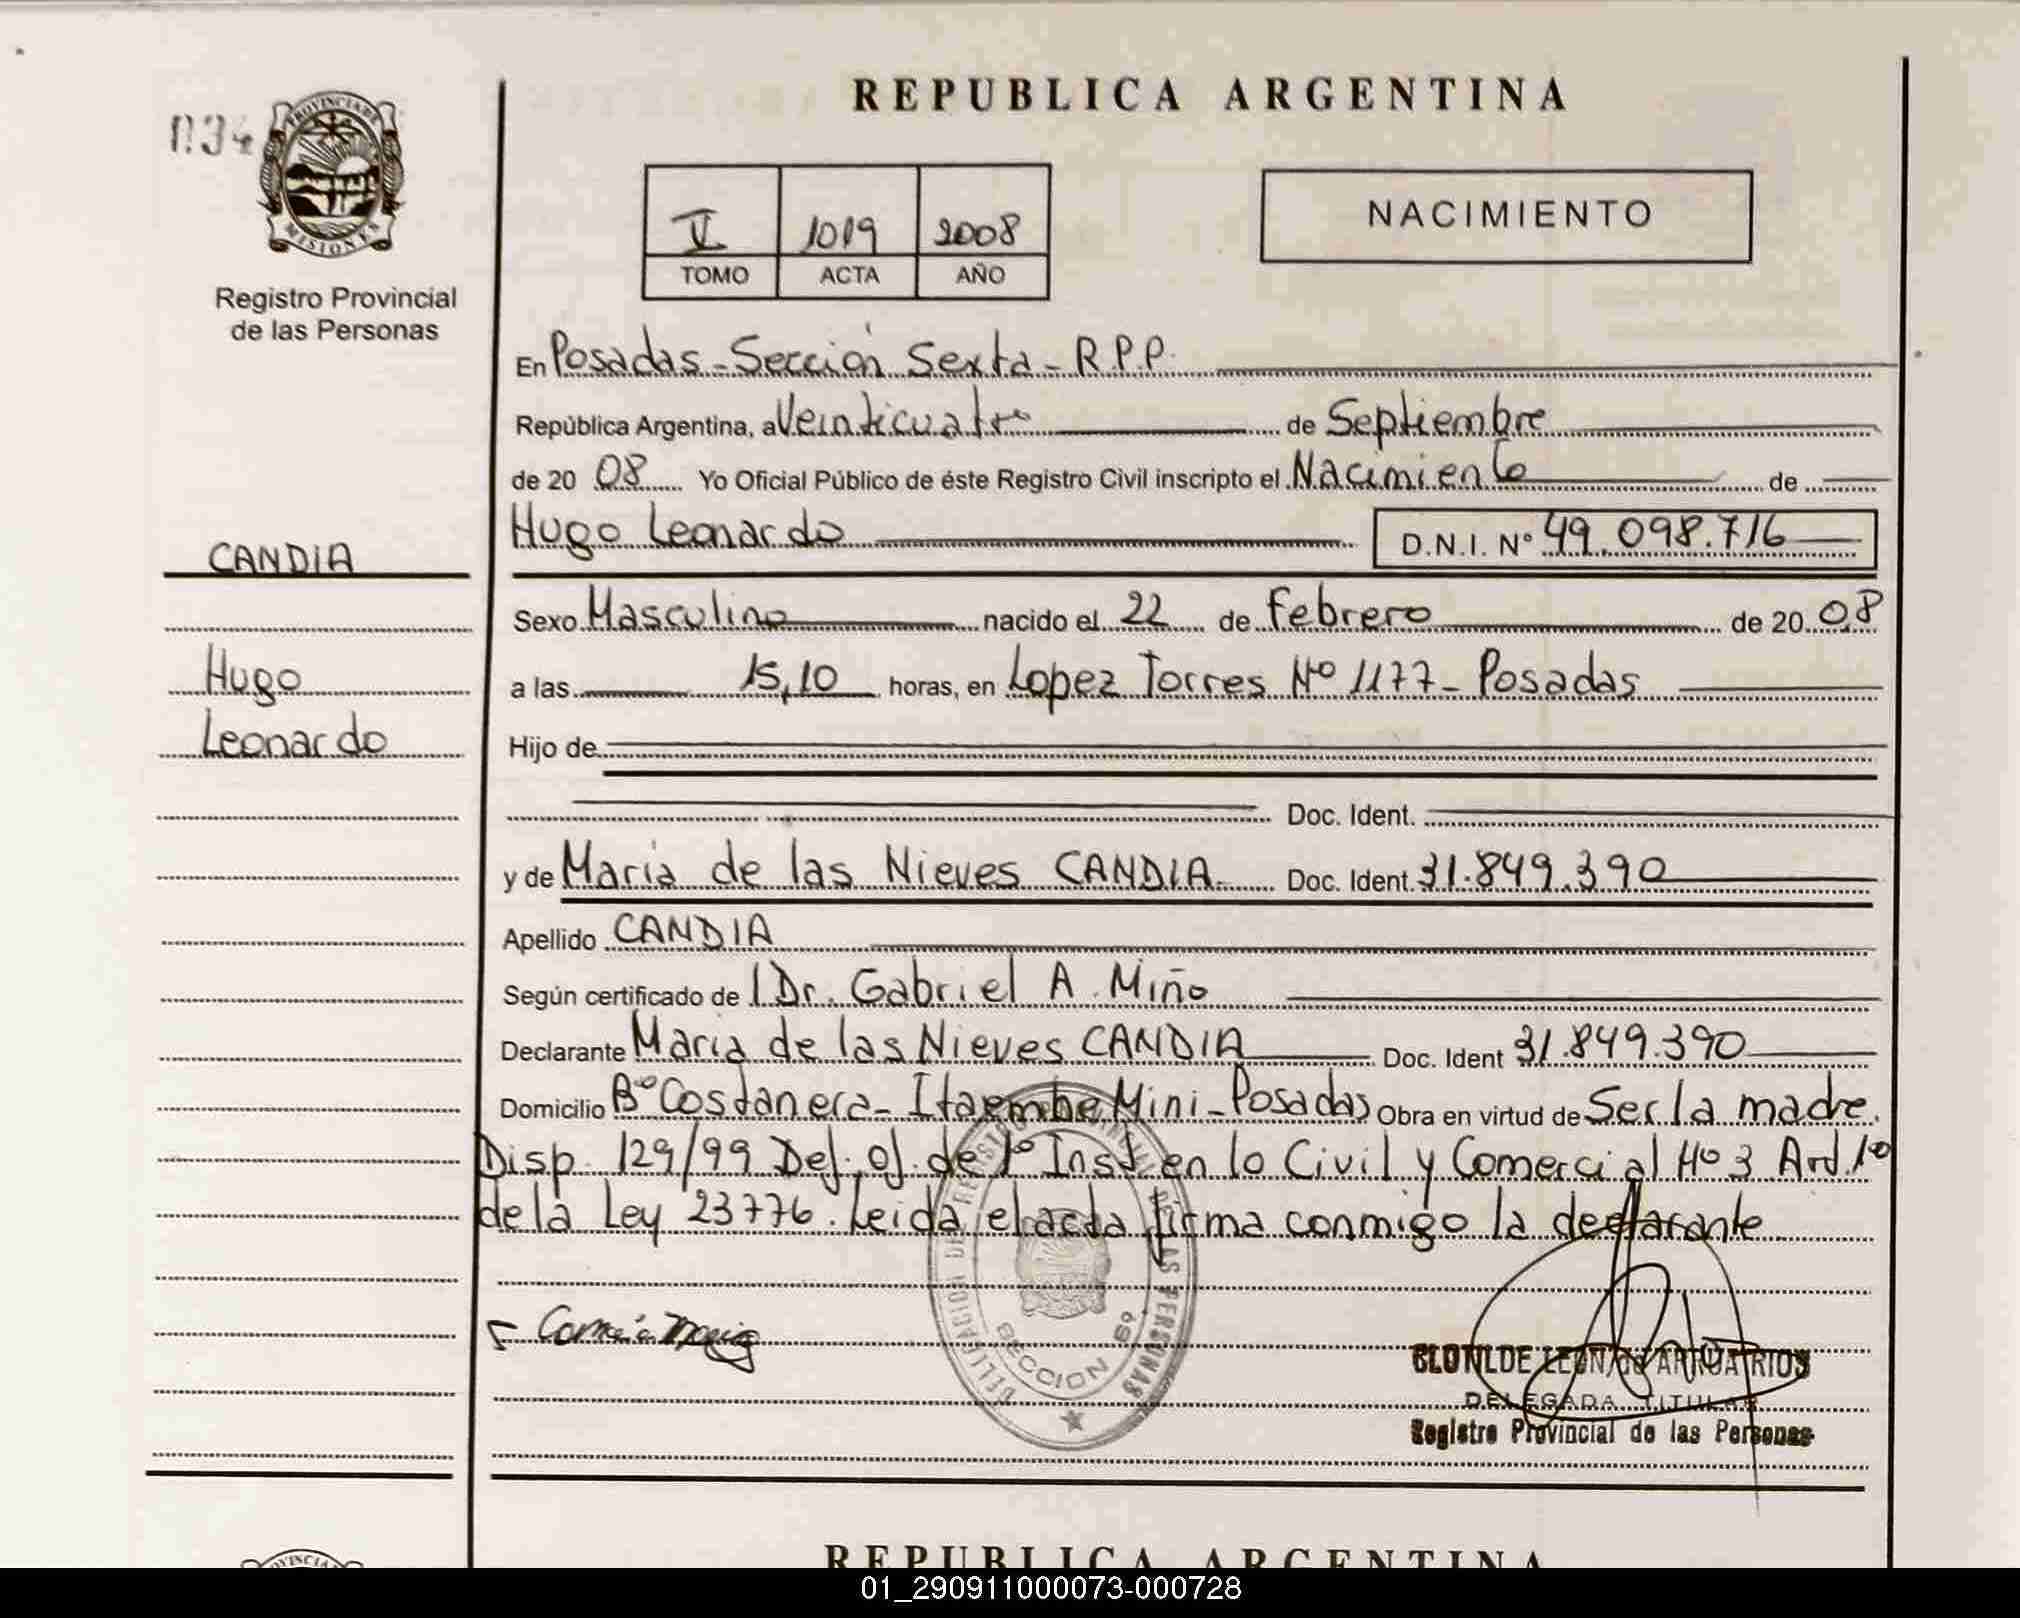 REPUBLICA ARGENTINA
PROVINCIA DE
MISIONES
Registro Provincial
de las Personas
V 1019 2008
TOMO ACTA AÑO
NACIMIENTO
En Posadas - Sección Sexta - R.P.P.
República Argentina, a Veinticuatro de Septiembre
de 20 08 Yo Oficial Público de éste Registro Civil inscripto el Nacimiento de
Hugo Leonardo D.N.I. N° 49.098.716
CANDIA
Hugo
Leonardo
Sexo Masculino nacido el 22 de Febrero de 20 08
a las 15,10 horas, en Lopez Torres Nº 1177 - Posadas
Hijo de
Doc. Ident.
y de Maria de las Nieves CANDIA. Doc. Ident. 31.849.390
Apellido CANDIA
Según certificado de l Dr. Gabriel A. Miño
Declarante Maria de las Nieves CANDIA Doc. Ident 31.849.390
Domicilio Bº Costanera - Itaembe Mini - Posadas Obra en virtud de Ser la madre.
Disp. 129/99 Def. Of. de 1º Inst en lo Civil y Comercial Nº 3 Art. 1º
de la Ley 23776. Leida el acta firma conmigo la declarante
SECCION 6º
CLOTILDE LEON de ARRUA RIOS
DELEGADA TITULAR
Registro Provincial de las Personas
REPUBLICA ARGENTINA
01_290911000073-000728